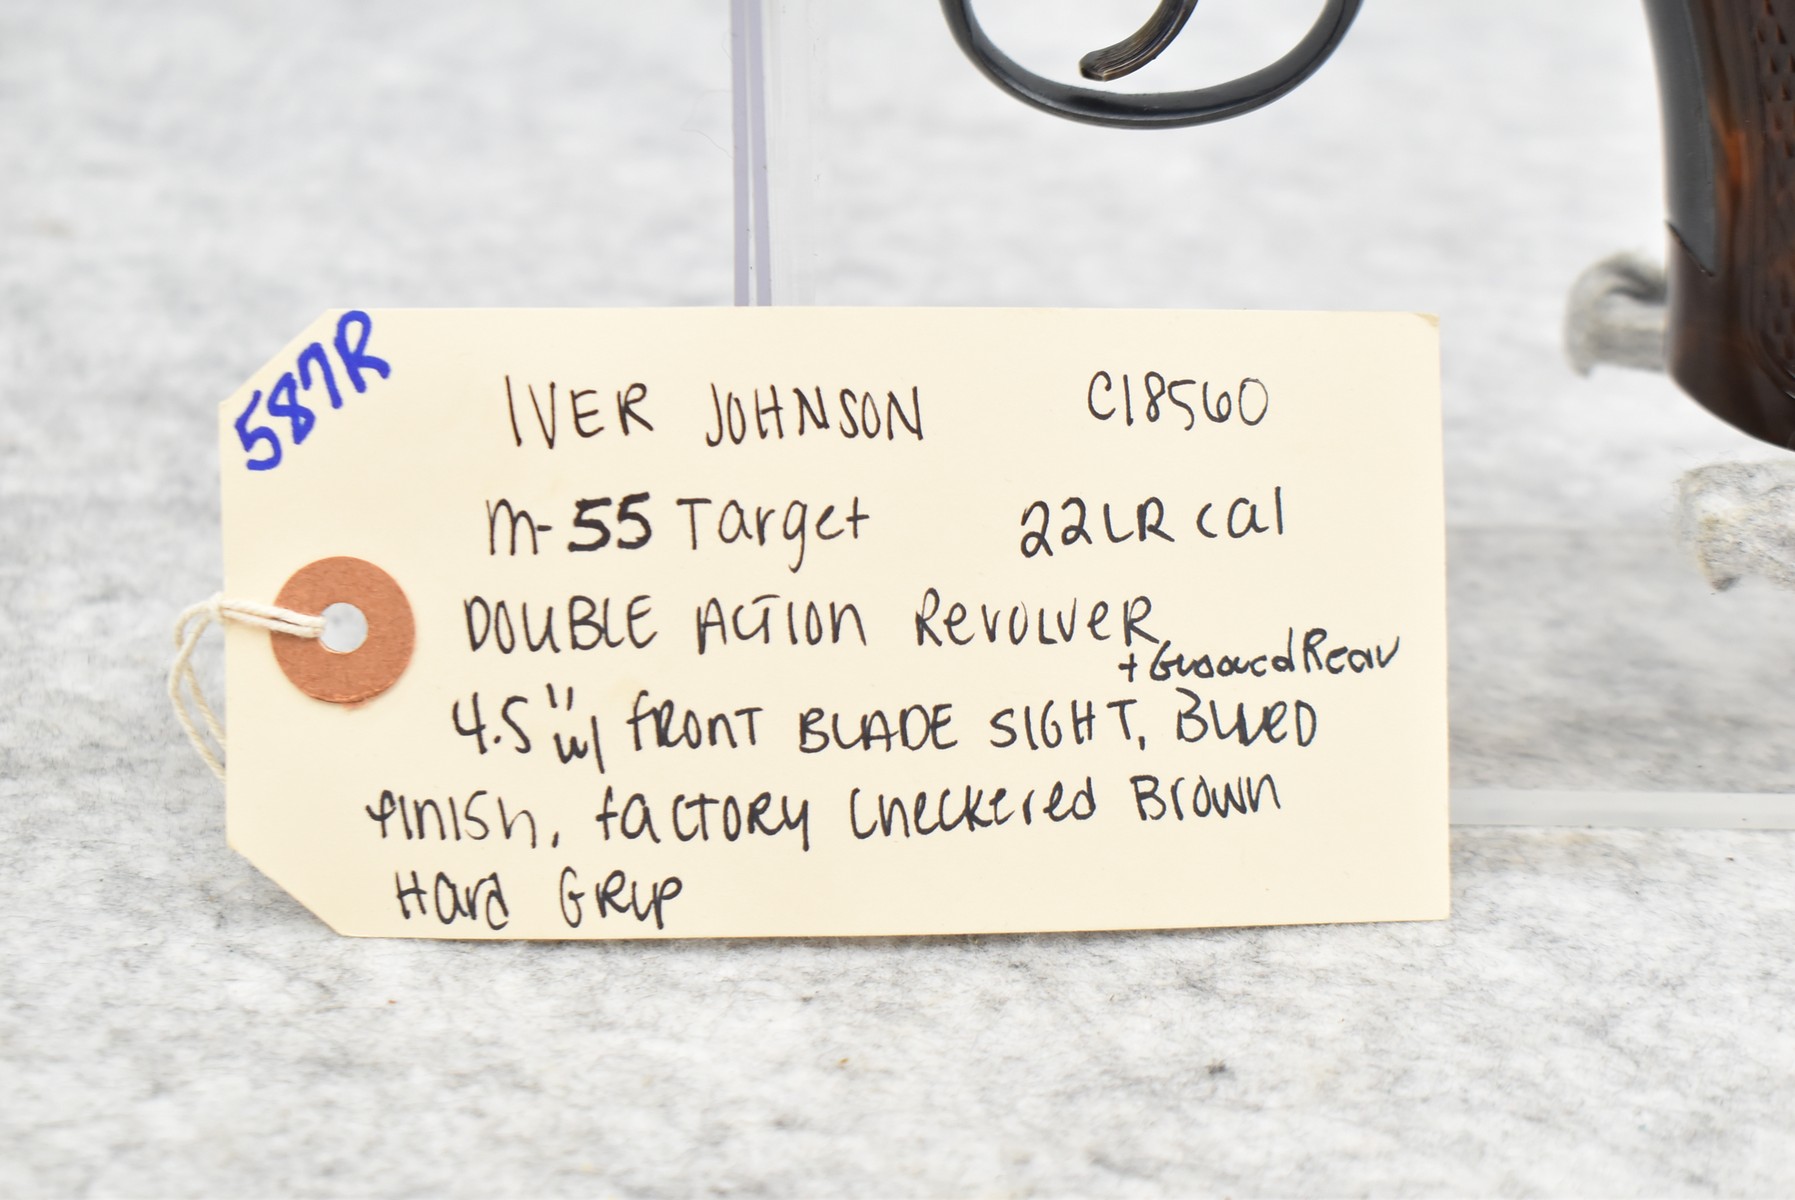 587R
IVER JOHNSON C18560
M-55 Target 22LR cal
DOUBLE ACTION REVOLVER
+ Grooved Rear
4.5" w/ FRONT BLADE SIGHT, BLUED
FINISH, FACTORY CHECKERED BROWN
HARD GRIP